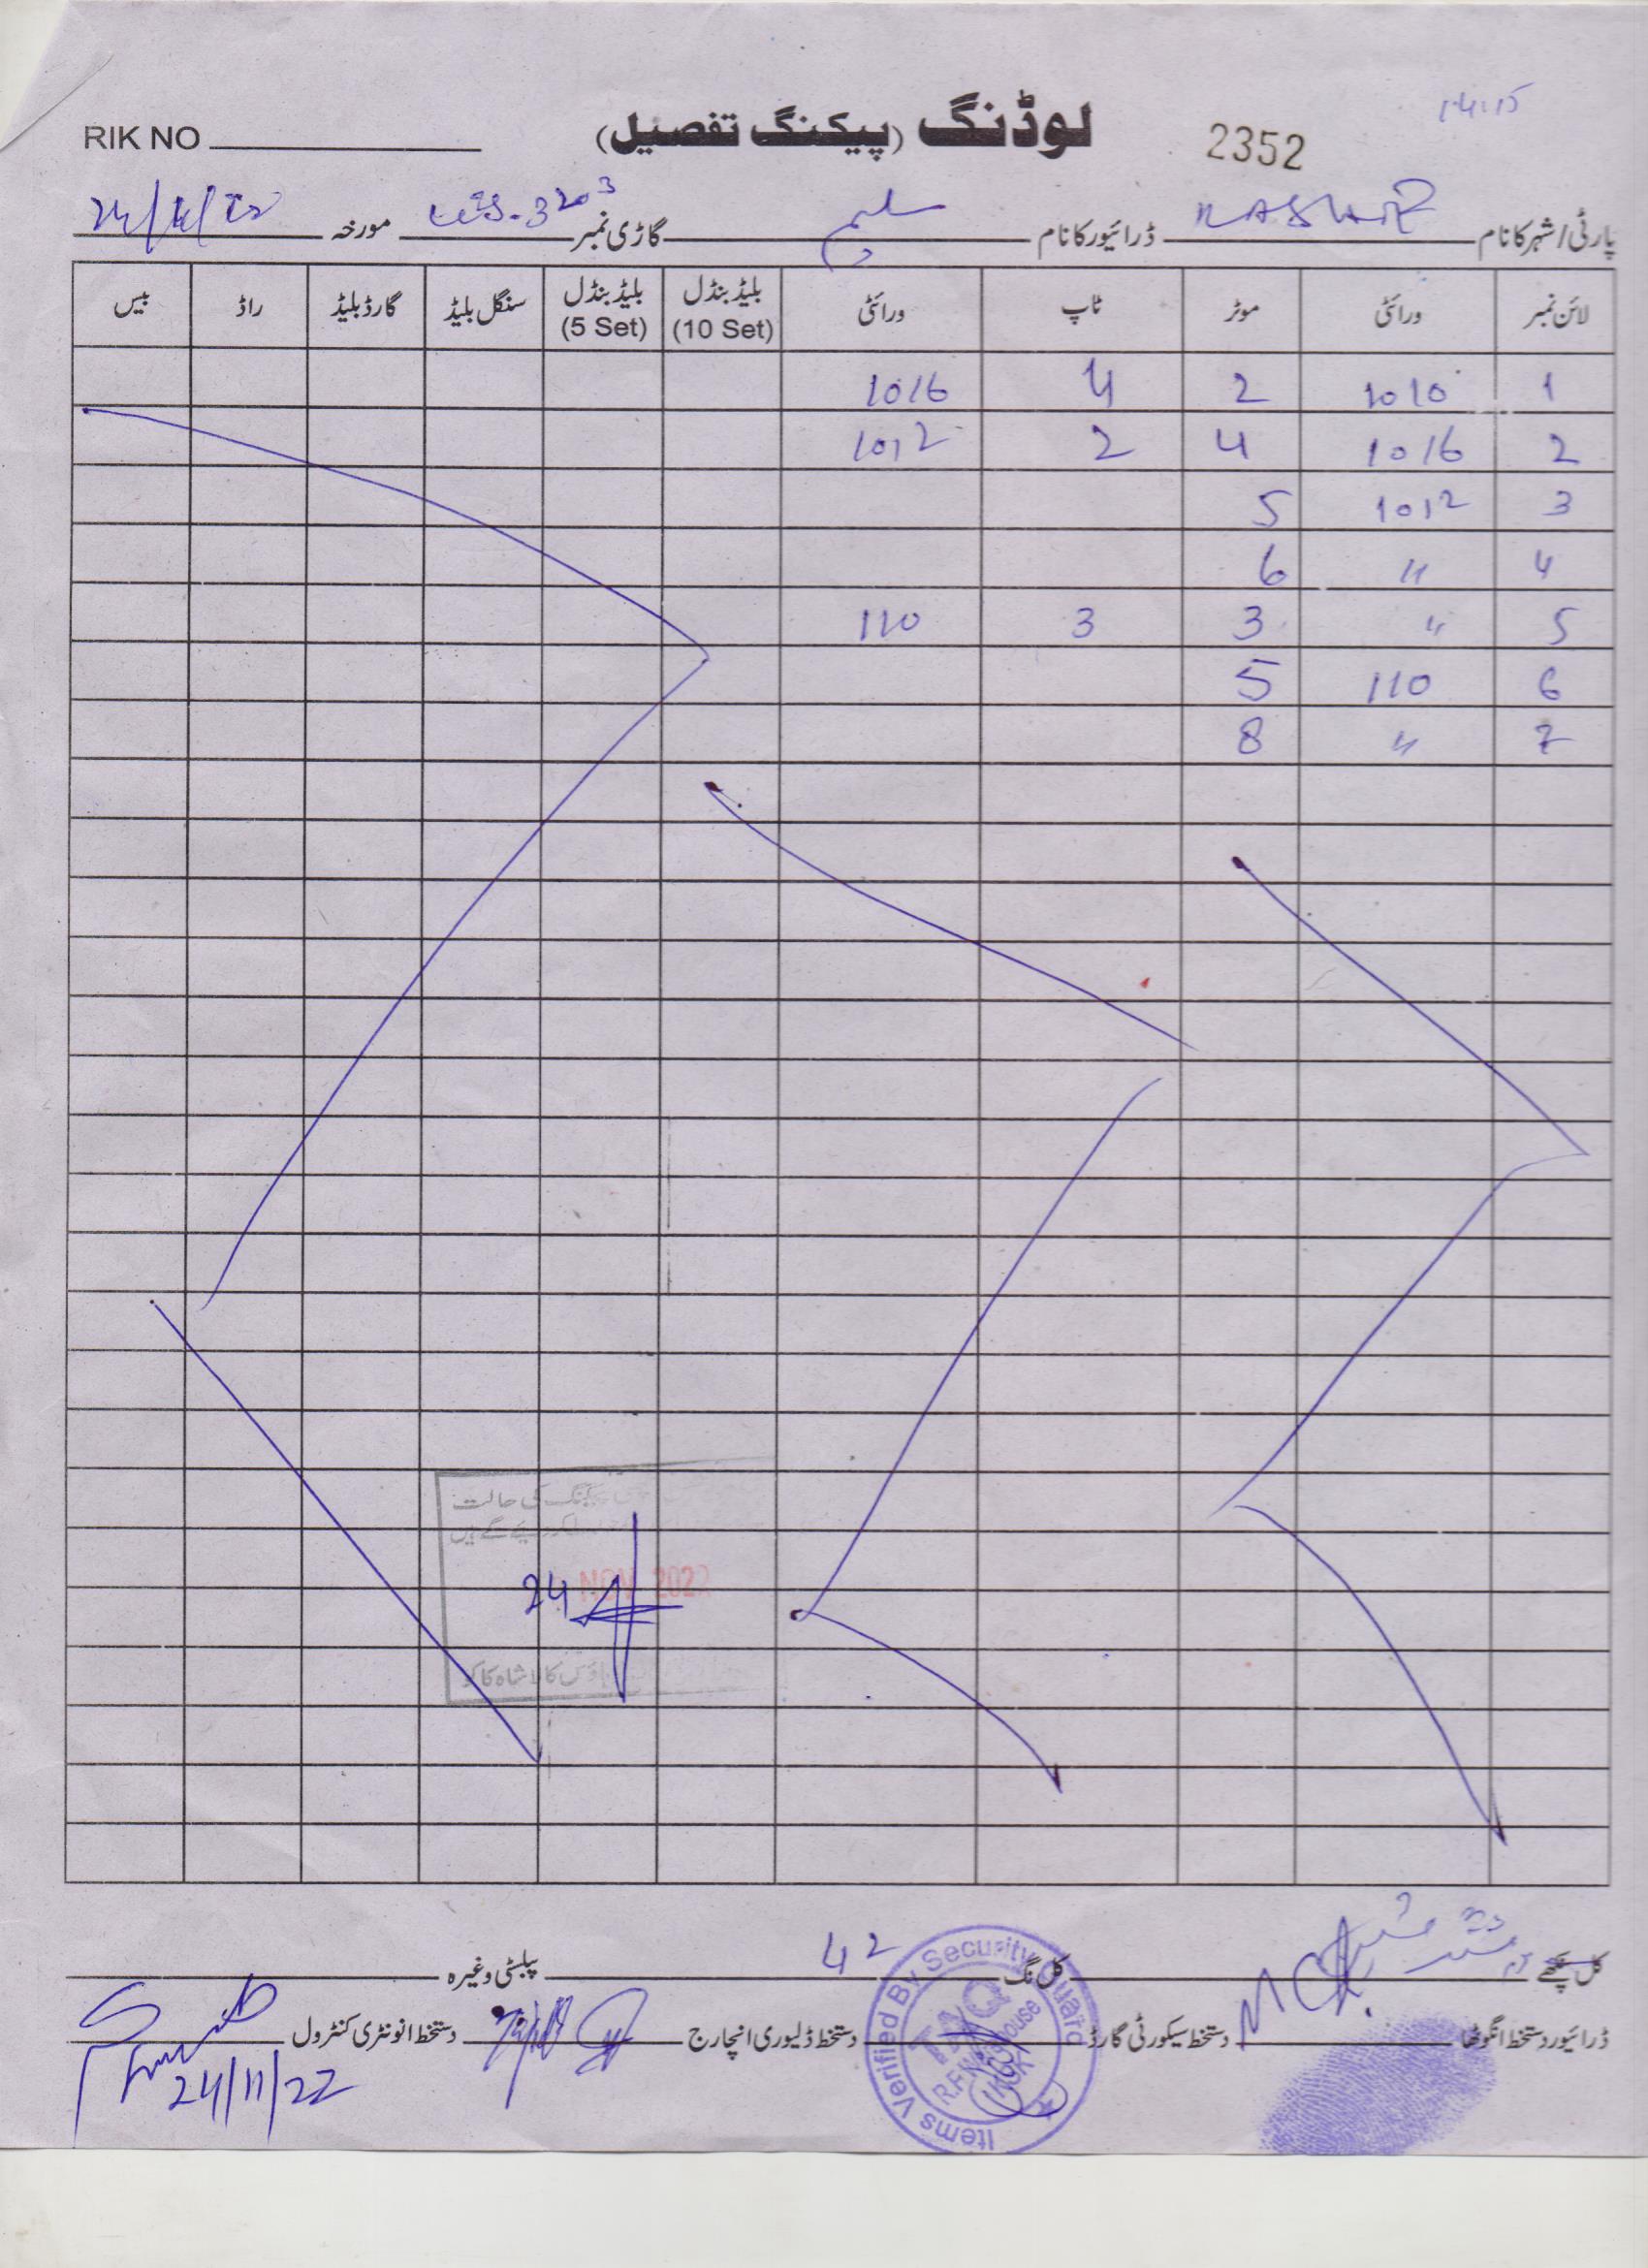 14:15
RIK NO لوڈنگ (پیکنگ تفصیل) 2352
پارٹی/شہر کا نام KASHIF ڈرائیور کا نام سلیم گاڑی نمبر 3203 مورخہ
لائن نمبر ورائٹی موٹر ٹاپ ورائٹی بلیڈ بنڈل (10 Set) بلیڈ بنڈل (5 Set) سنگل بلیڈ گارڈ بلیڈ راڈ بیس
1 1010 2 4 1016
2 1016 4 2 1012
3 1012 5
4 〃 6
5 〃 3 3 110
6 110 5
7 〃 8
پیکنگ کی حالت
کر دیئے گئے ہیں
24 NOV 2022
کالا شاہ کاکو
کل پنکھے کل نگ 42 پبلسٹی وغیرہ
ڈرائیور دستخط انگوٹھا دستخط سیکورٹی گارڈ دستخط ڈلیوری انچارج دستخط انونٹری کنٹرول
24/11/22
Items Verified By Security Guard